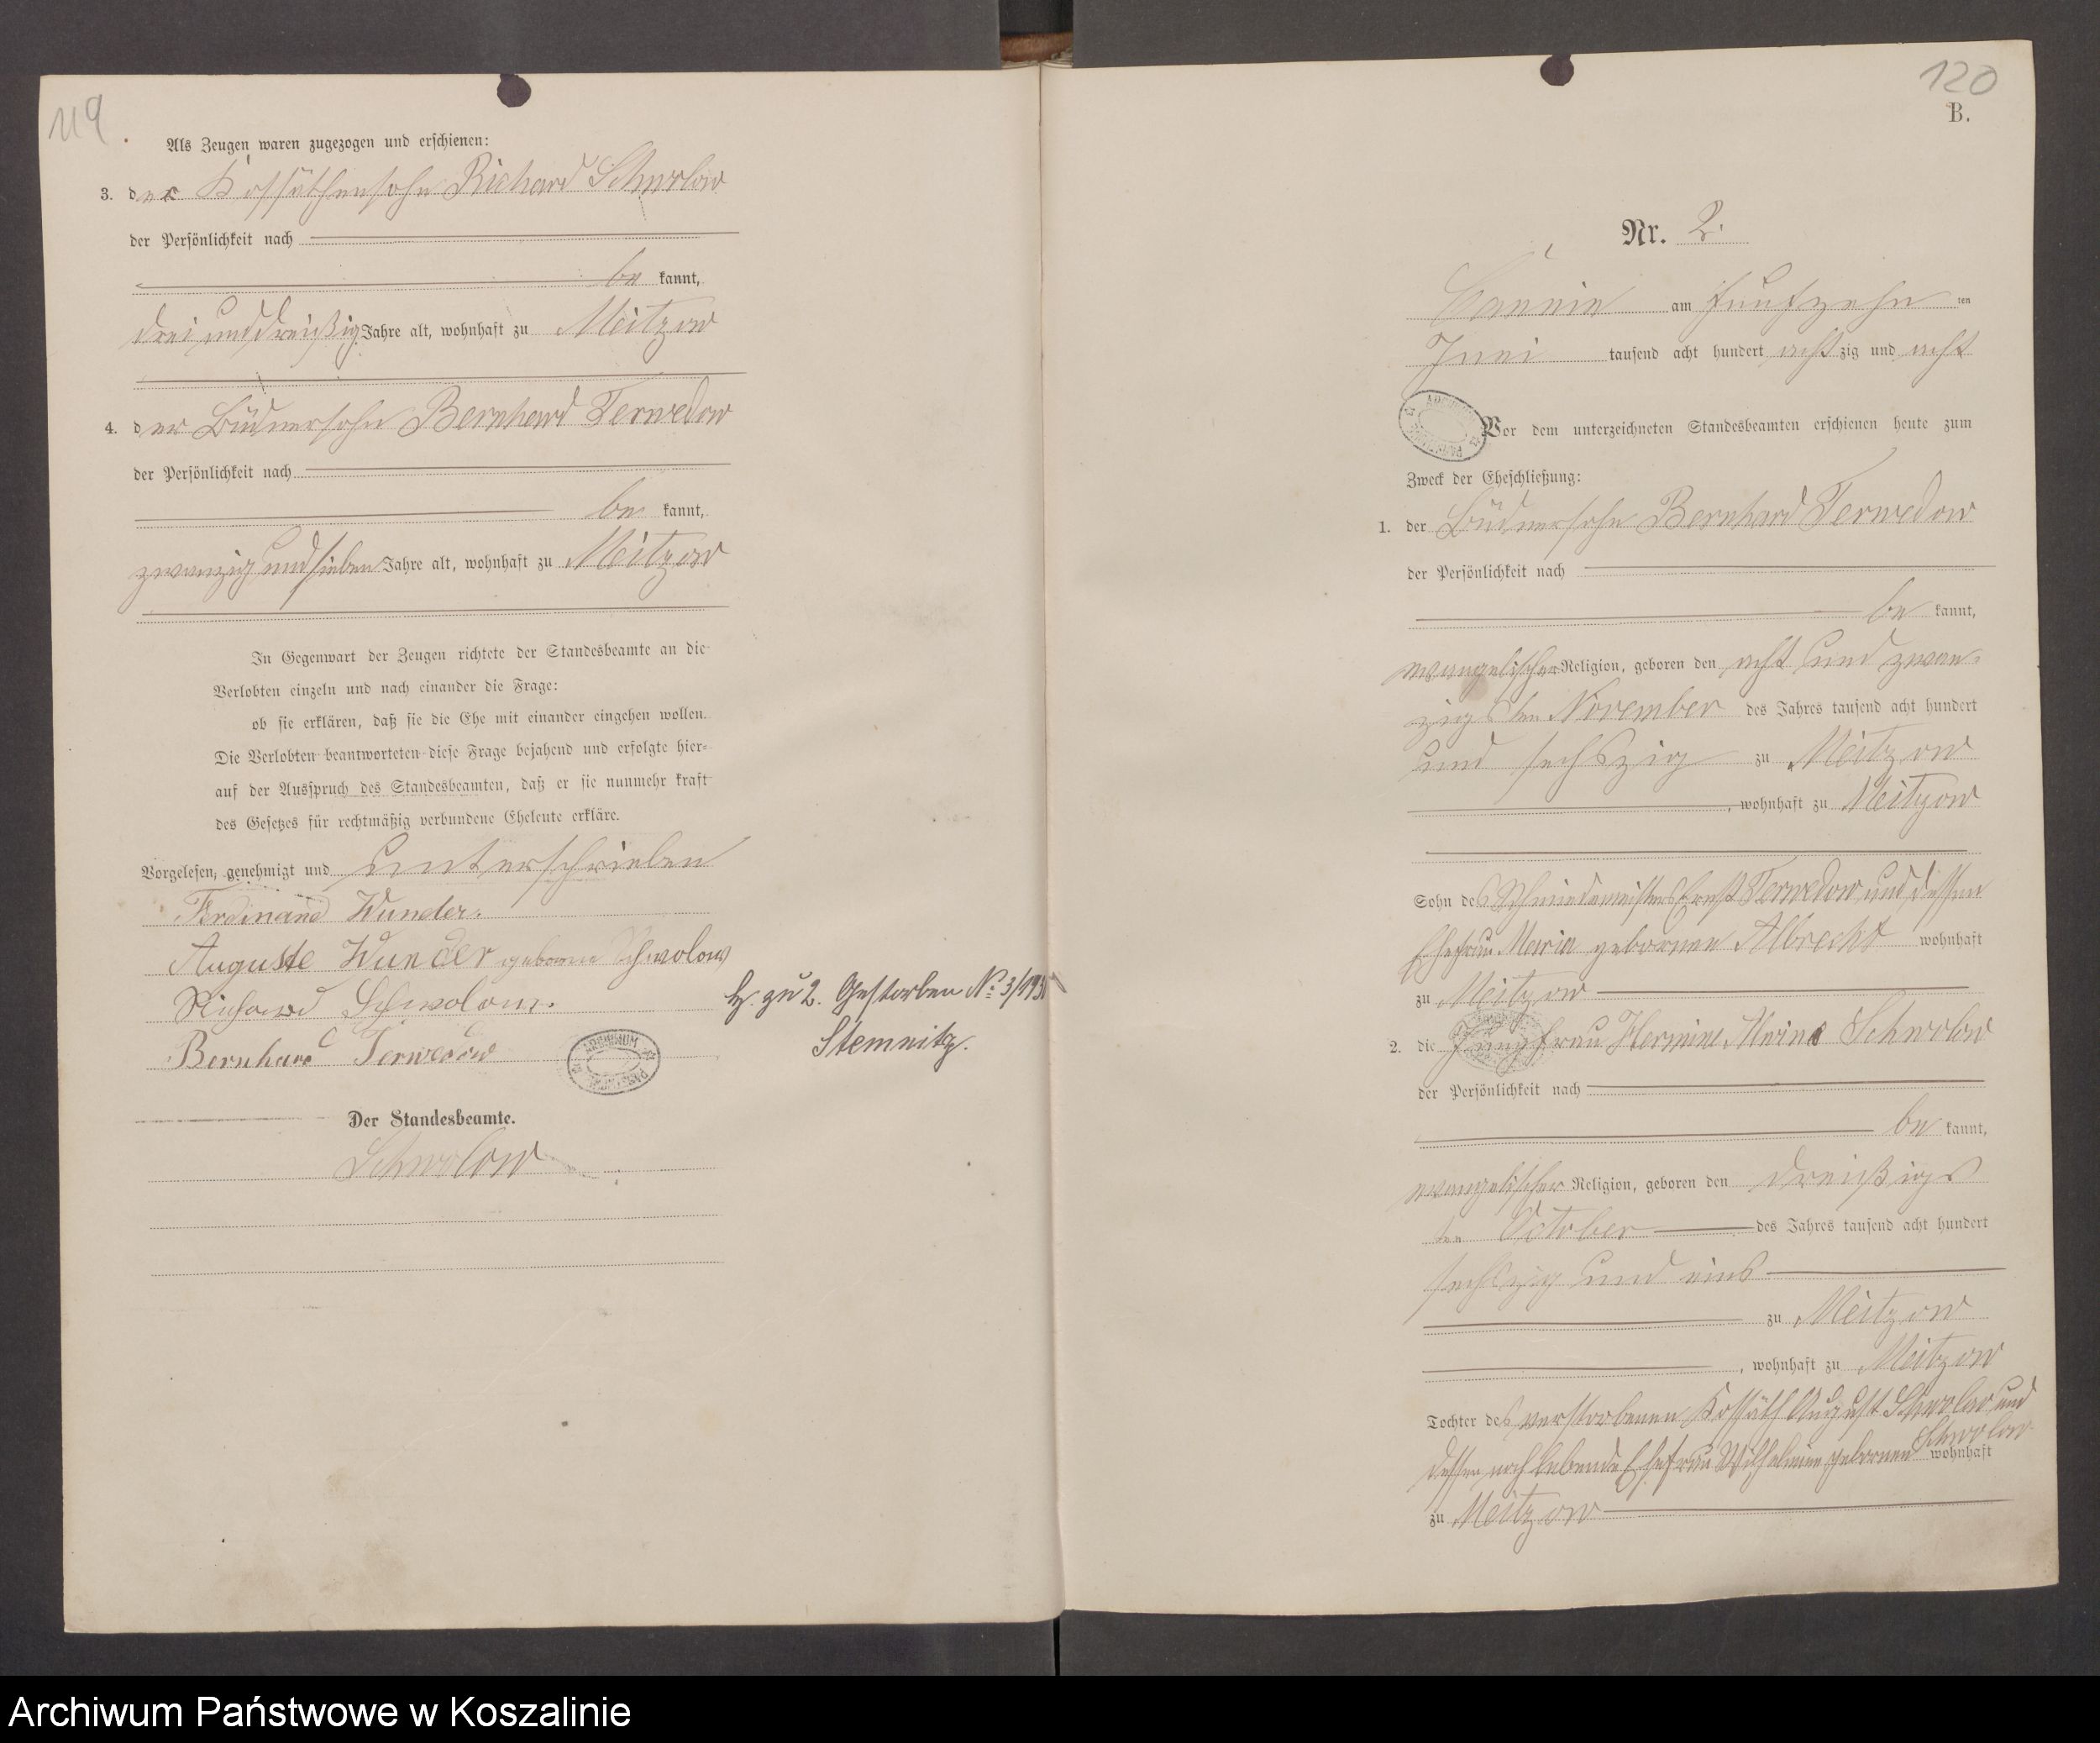 119
Als Zeugen waren zugezogen und erschienen:
3. der Kossäthensohn Richard Schwolow
der Persönlichkeit nach
be kannt,
drei und dreißig Jahre alt, wohnhaft zu Meitzow
4. der Büdnersohn Bernhard Terwedow
der Persönlichkeit nach
be kannt,
zwanzig und sieben Jahre alt, wohnhaft zu Meitzow
In Gegenwart der Zeugen richtete der Standesbeamte an die
Verlobten einzeln und nach einander die Frage:
ob sie erklären, daß sie die Ehe mit einander eingehen wollen.
Die Verlobten beantworteten diese Frage bejahend und erfolgte hier-
auf der Ausspruch des Standesbeamten, daß er sie nunmehr kraft
des Gesetzes für rechtmäßig verbundene Eheleute erkläre.
Vorgelesen, genehmigt und unterschrieben
Ferdinand Wunder.
Auguste Wunder geborne Schwolow
Richard Schwolow.
Bernhard Terwedow
zu 2. Gestorben No. 3/193
Stemnitz.
ARCHIWUM
Der Standesbeamte.
Schwolow
120
B.
Nr. 2.
am fünfzehn ten
Juni tausend acht hundert acht zig und acht
Vor dem unterzeichneten Standesbeamten erschienen heute zum
Zweck der Eheschließung:
1. der Büdnersohn Bernhard Terwedow
der Persönlichkeit nach
be kannt,
evangelischer Religion, geboren den acht und zwan-
zigsten November des Jahres tausend acht hundert
und sechszig zu Meitzow
, wohnhaft zu Meitzow
Sohn des Schmiedemeisters Ernst Terwedow und dessen
Ehefrau Maria gebornen Albrecht wohnhaft
zu Meitzow
2. die Jungfrau Hermine Schwolow
der Persönlichkeit nach
be kannt,
evangelischer Religion, geboren den dreißigs
ten October des Jahres tausend acht hundert
sechszig und eins
zu Meitzow
, wohnhaft zu Meitzow
Tochter des verstorbenen Kossäth August Schwolow und
dessen noch lebende Ehefrau Wilhelmine gebornen Schwolow wohnhaft
zu Meitzow
Archiwum Państwowe w Koszalinie